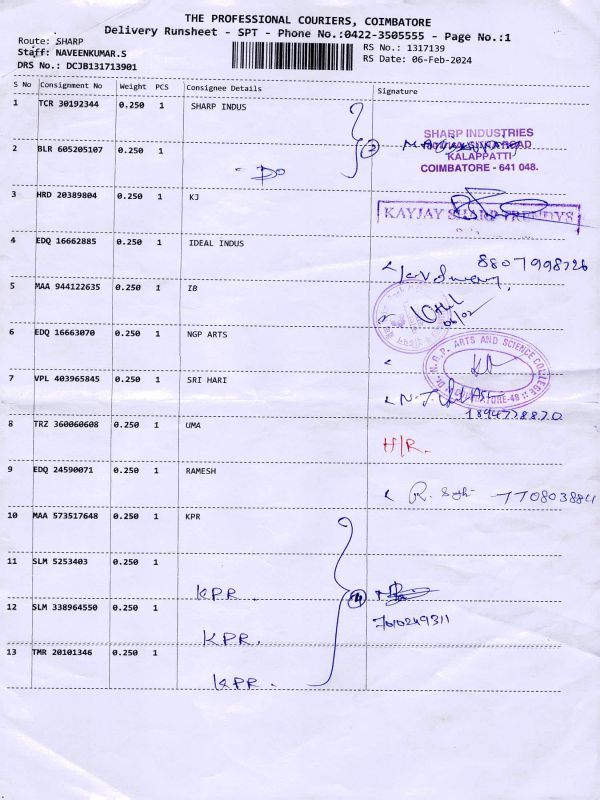 THE PROFESSIONAL COURIERS, COIMBATORE
Delivery Runsheet - SPT - Phone No.:0422-3505555 - Page No.:1
Route: SHARP
RS No.: 1317139
Staff: NAVEENKUMAR.S
RS Date: 06-Feb-2024
DRS No.: DCJB131713901
S No Consignment No Weight PCS Consignee Details Signature
1 TCR 30192344 0.250 1 SHARP INDUS
SHARP INDUSTRIES
2 BLR 605205107 0.250 1 2
KALAPPATTI
- DO COIMBATORE - 641 048.
3 HRD 20389804 0.250 1 KJ
KAYJAY SHARP TRENDYS
4 EDQ 16662885 0.250 1 IDEAL INDUS
8807998726
5 MAA 944122635 0.250 1 IB
06/02
6 EDQ 16663070 0.250 1 NGP ARTS
Dr. N.G.P. ARTS AND SCIENCE COLLEGE
7 VPL 403965845 0.250 1 SRI HARI
1894778870
8 TRZ 360060608 0.250 1 UMA
H/R.
9 EDQ 24590071 0.250 1 RAMESH
7708038841
10 MAA 573517648 0.250 1 KPR
11 SLM 5253403 0.250 1
KPR. 4
12 SLM 338964550 0.250 1
7010249311
KPR.
13 TMR 20101346 0.250 1
KPR.